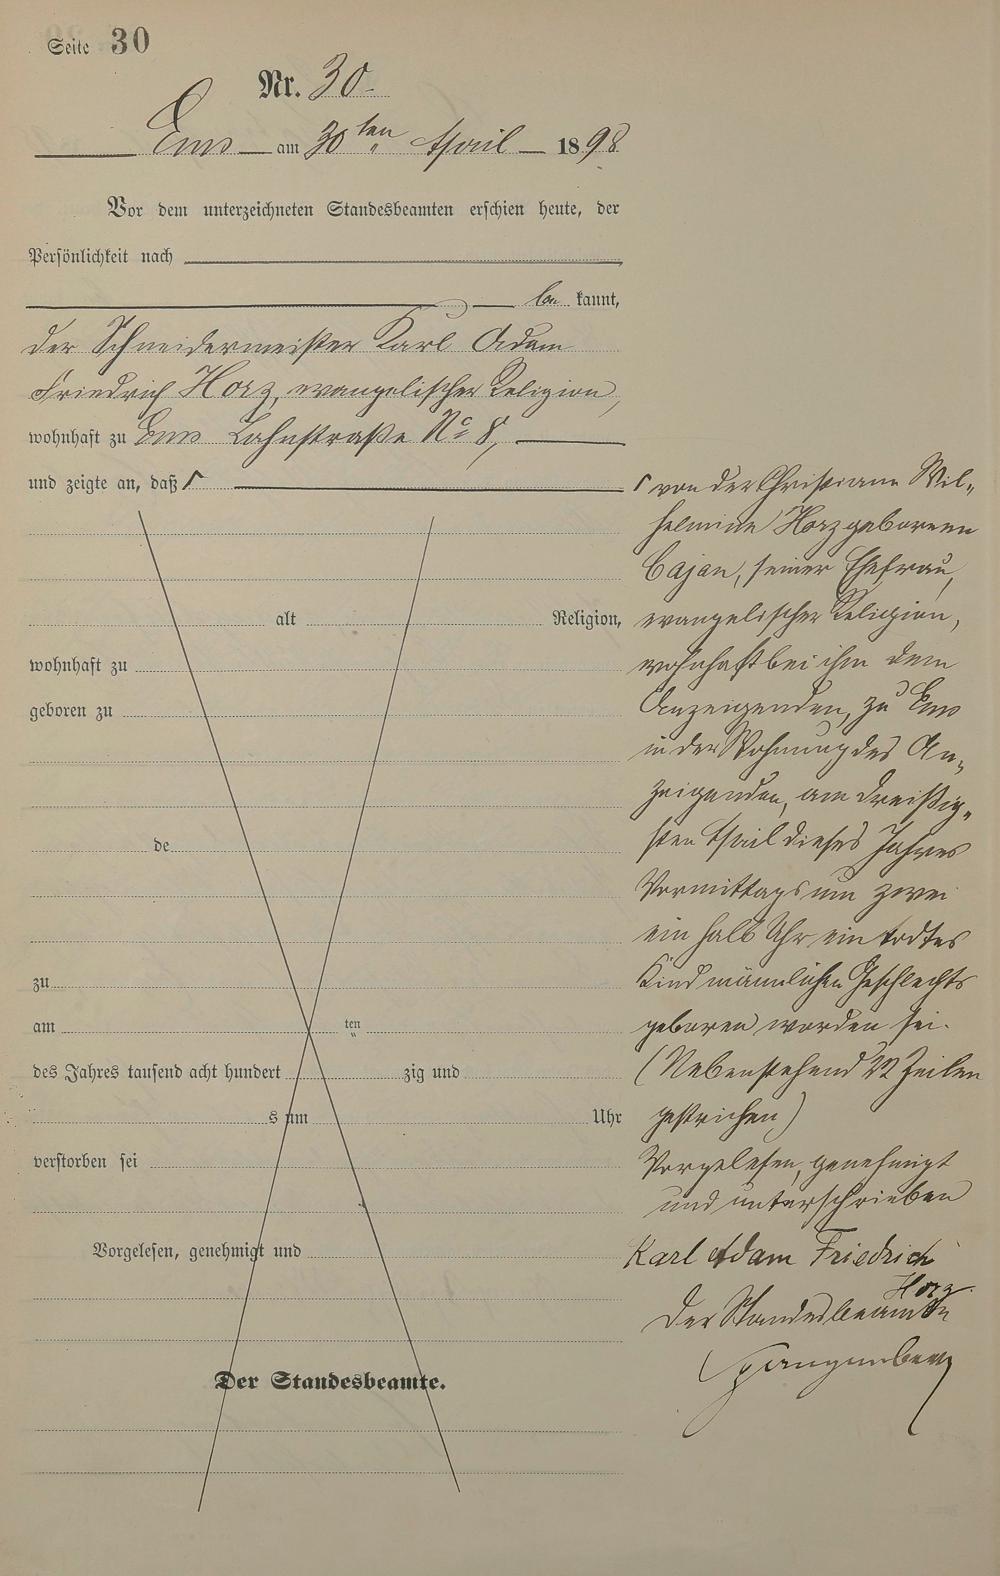 Seite 30
Nr. 30.
Ems am 30ten April 1898
Vor dem unterzeichneten Standesbeamten erschien heute, der
Persönlichkeit nach
be kannt,
der Schneidermeister Karl Adam
Friedrich Horz, evangelischer Religion,
wohnhaft zu Ems Lahnstraße No 8,
und zeigte an, daß Γ
alt Religion,
wohnhaft zu
geboren zu
de
zu
am ten
des Jahres tausend acht hundert zig und
s um Uhr
verstorben sei
Vorgelesen, genehmigt und
Der Standesbeamte.
Γ von der Christiane Wil-
helmine Horz geborenen
Cajan, seiner Ehefrau,
evangelischer Religion,
wohnhaft bei ihm dem
Anzeigenden, zu Ems
in der Wohnung des An-
zeigenden, am dreißig-
sten April dieses Jahres
Vormittags um zwei
ein halb Uhr ein todtes
Kind männlichen Geschlechts
geboren worden sei.
(Nebenstehend 22 Zeilen
gestrichen)
Vorgelesen, genehmigt
und unterschrieben
Karl Adam Friedrich
Horz
Der Standesbeamte
Spangenberg